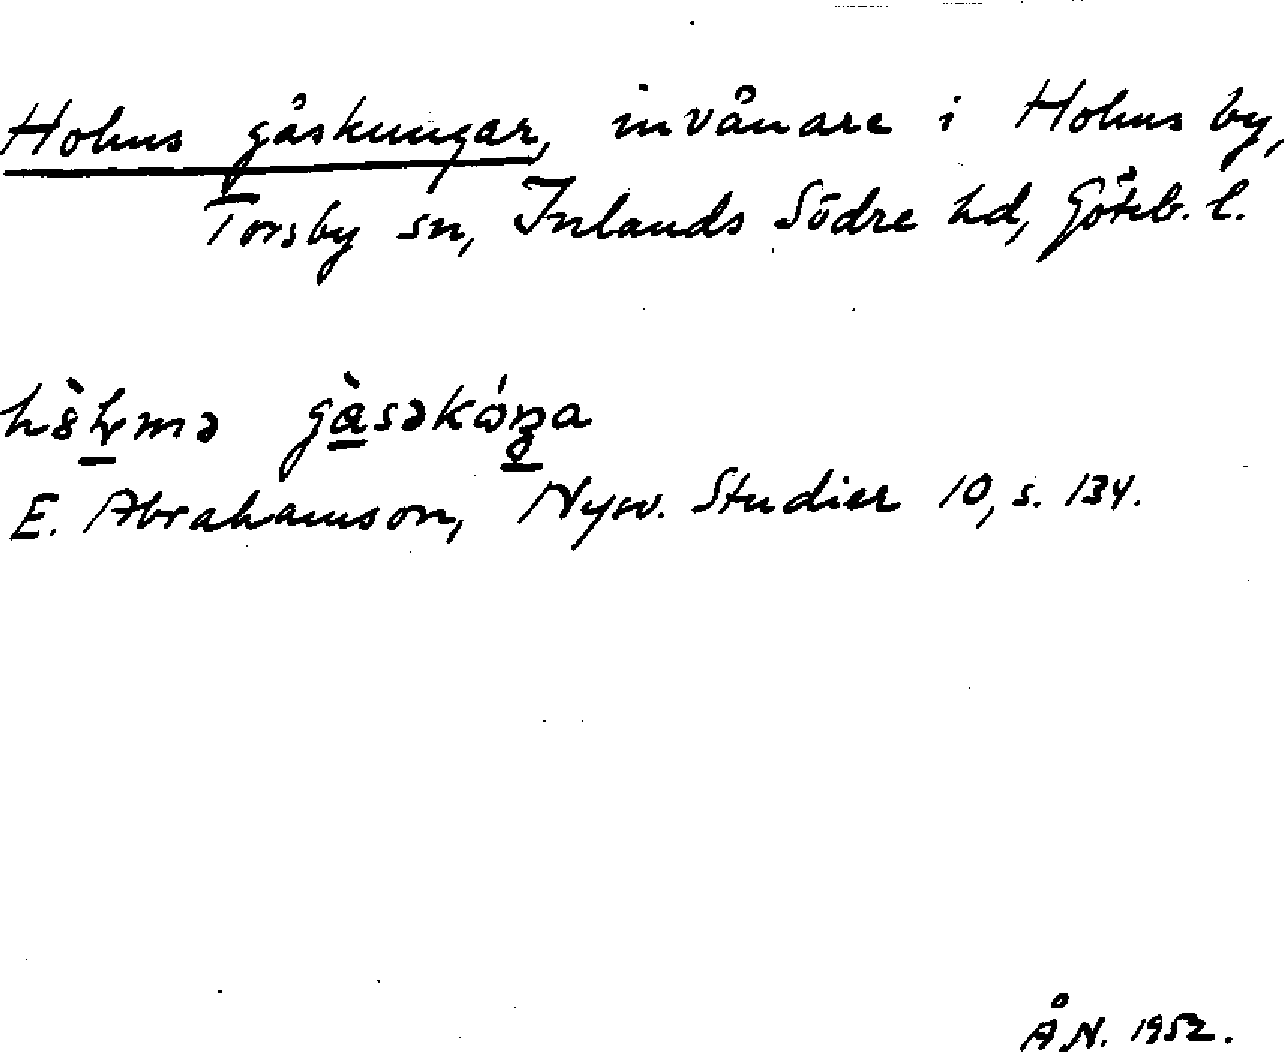 Holms gåskungar, invånare i Holms by,
Torsby sn, Inlands Södre hd, Göteb. l.
E. Abrahamson, Nysv. Studier 10, s. 134.
ÅN. 1952.